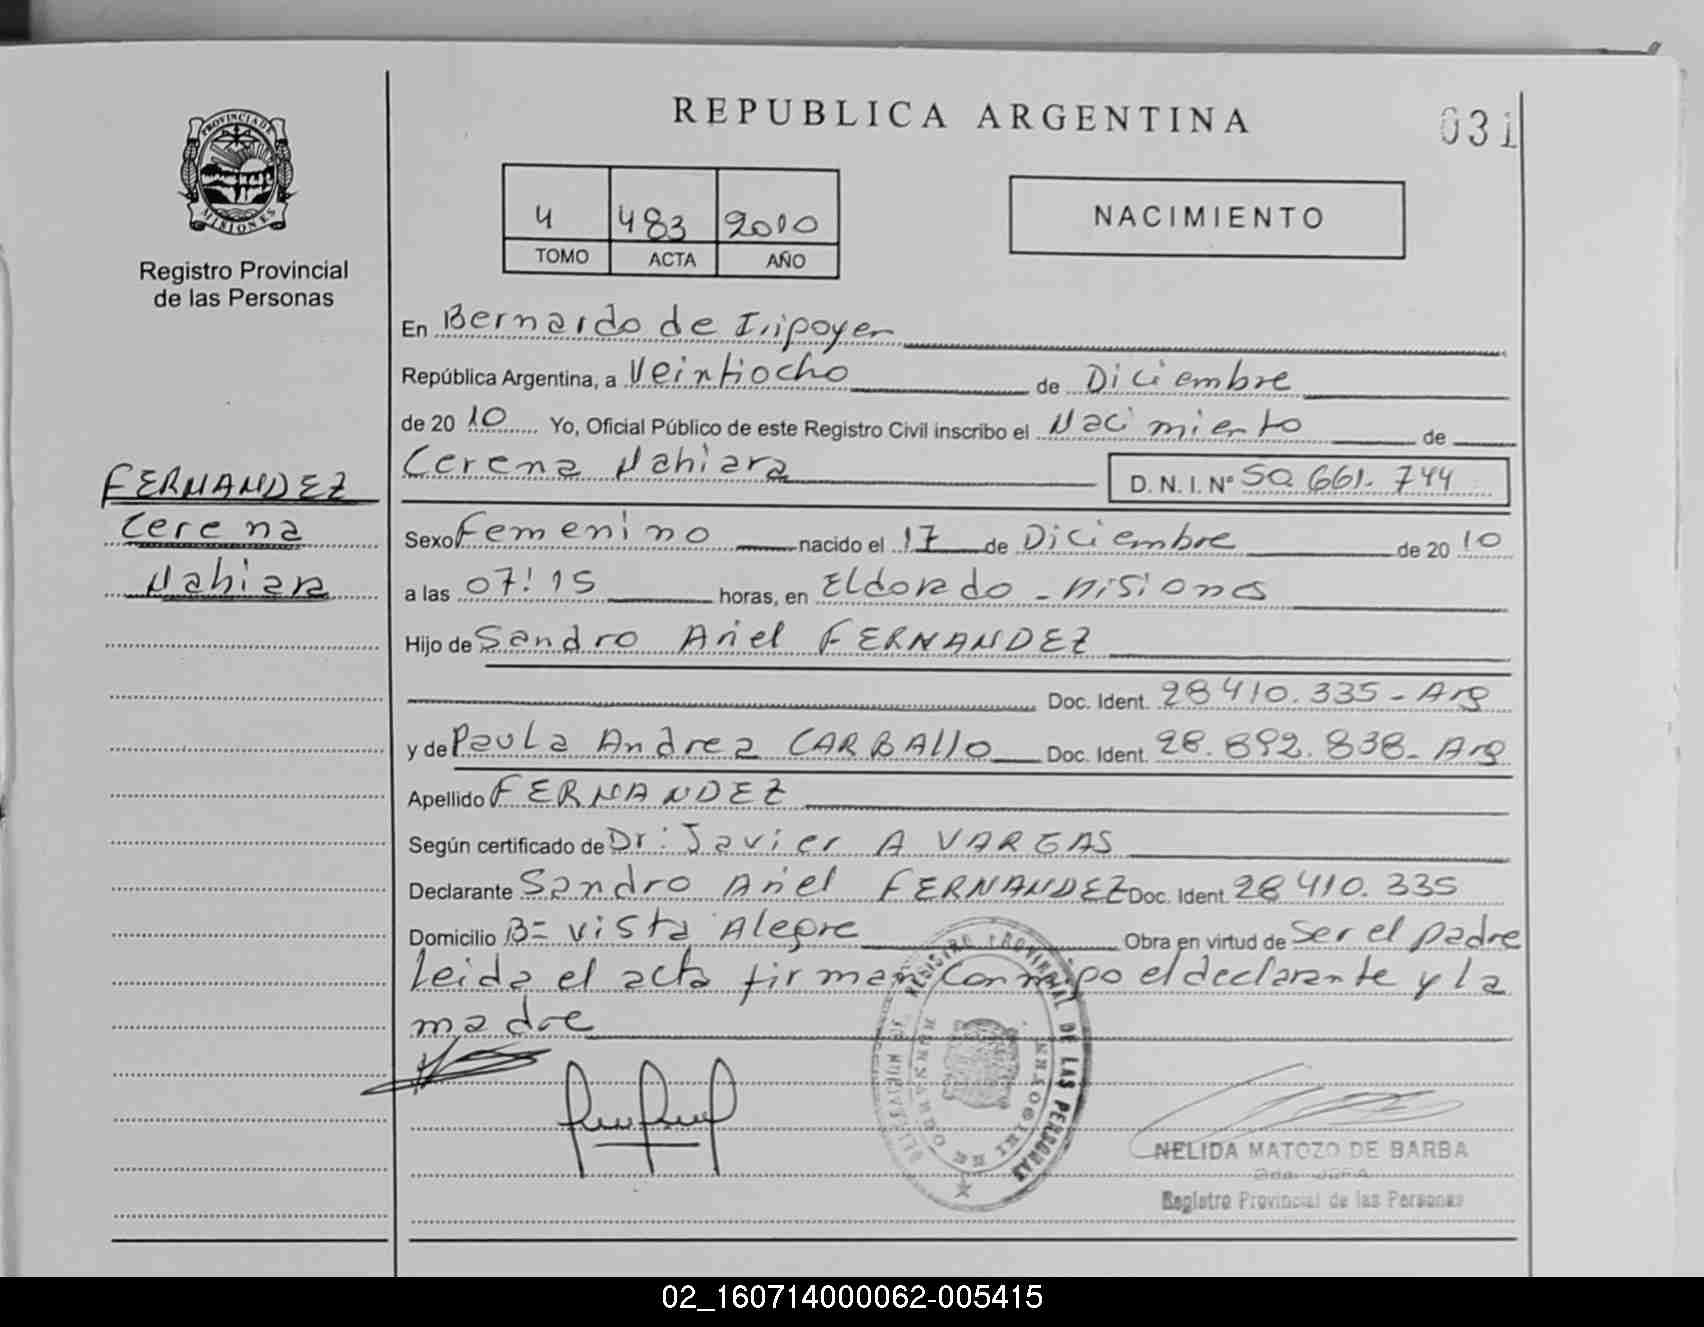 REPUBLICA ARGENTINA
031
PROVINCIA DE
MISIONES
Registro Provincial
de las Personas
4 483 2010
TOMO ACTA AÑO
NACIMIENTO
En Bernardo de Iripoyen
República Argentina, a Veintiocho de Diciembre
de 2010 Yo, Oficial Público de este Registro Civil inscribo el Nacimiento de
Cerena Nahiara D. N. I. Nº 50.661.744
FERNANDEZ
Cerena
Nahiara
Sexo Femenino nacido el 17 de Diciembre de 2010
a las 07:15 horas, en Eldorado - Misiones
Hijo de Sandro Ariel FERNANDEZ
Doc. Ident. 28410.335 - Arg
y de Paula Andrea CARBALLO Doc. Ident. 28.892.838 - Arg
Apellido FERNANDEZ
Según certificado de Dr: Javier A VARGAS
Declarante Sandro Ariel FERNANDEZ Doc. Ident. 28410.335
Domicilio Bº Vista Alegre Obra en virtud de Ser el padre
Leida el acta firman conmigo el declarante y la
madre
REGISTRO PROVINCIAL DE LAS PERSONAS
NELIDA MATOZO DE BARBA
JEFA
Registro Provincial de las Personas
02_160714000062-005415